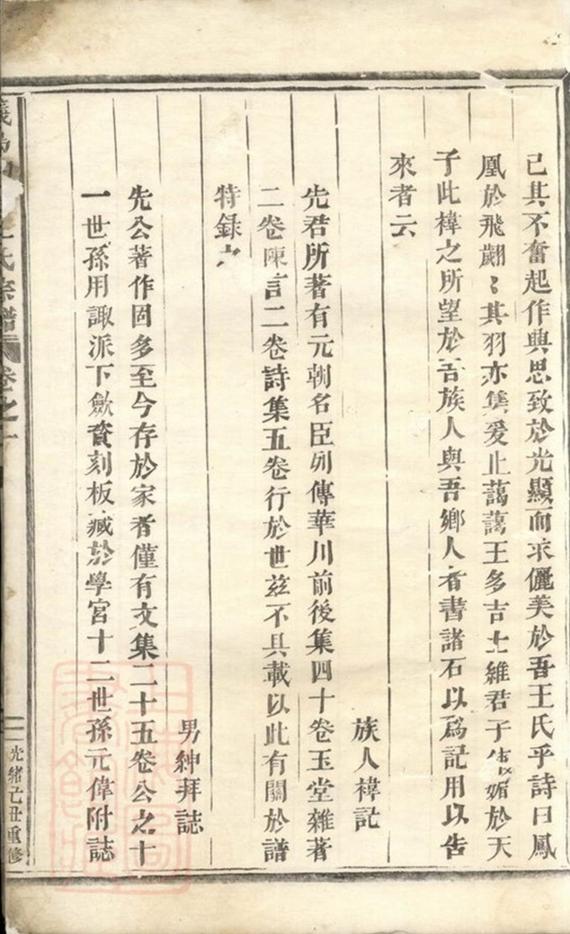 己其不奮起作興思致於光顯而求儷美於吾王氏乎詩曰鳳
凰於飛翽〻其羽亦雋爰止藹藹王多吉士維君子使媚於天
子此褘之所望於吾族人與吾鄉人者書諸石以爲記用以告
來者云
族人褘記
先君所著有元朝名臣列傳華川前後集四十卷玉堂雜著
二卷陳言二卷詩集五卷行於世玆不具載以此有關於譜
特錄之
男紳拜誌
先公著作固多至今存於家者僅有文集二十五卷公之十
一世孫用諏派下歛賫刻板藏於學宮十二世孫元偉附誌
氏宗譜 卷之十
光緒己丑重修